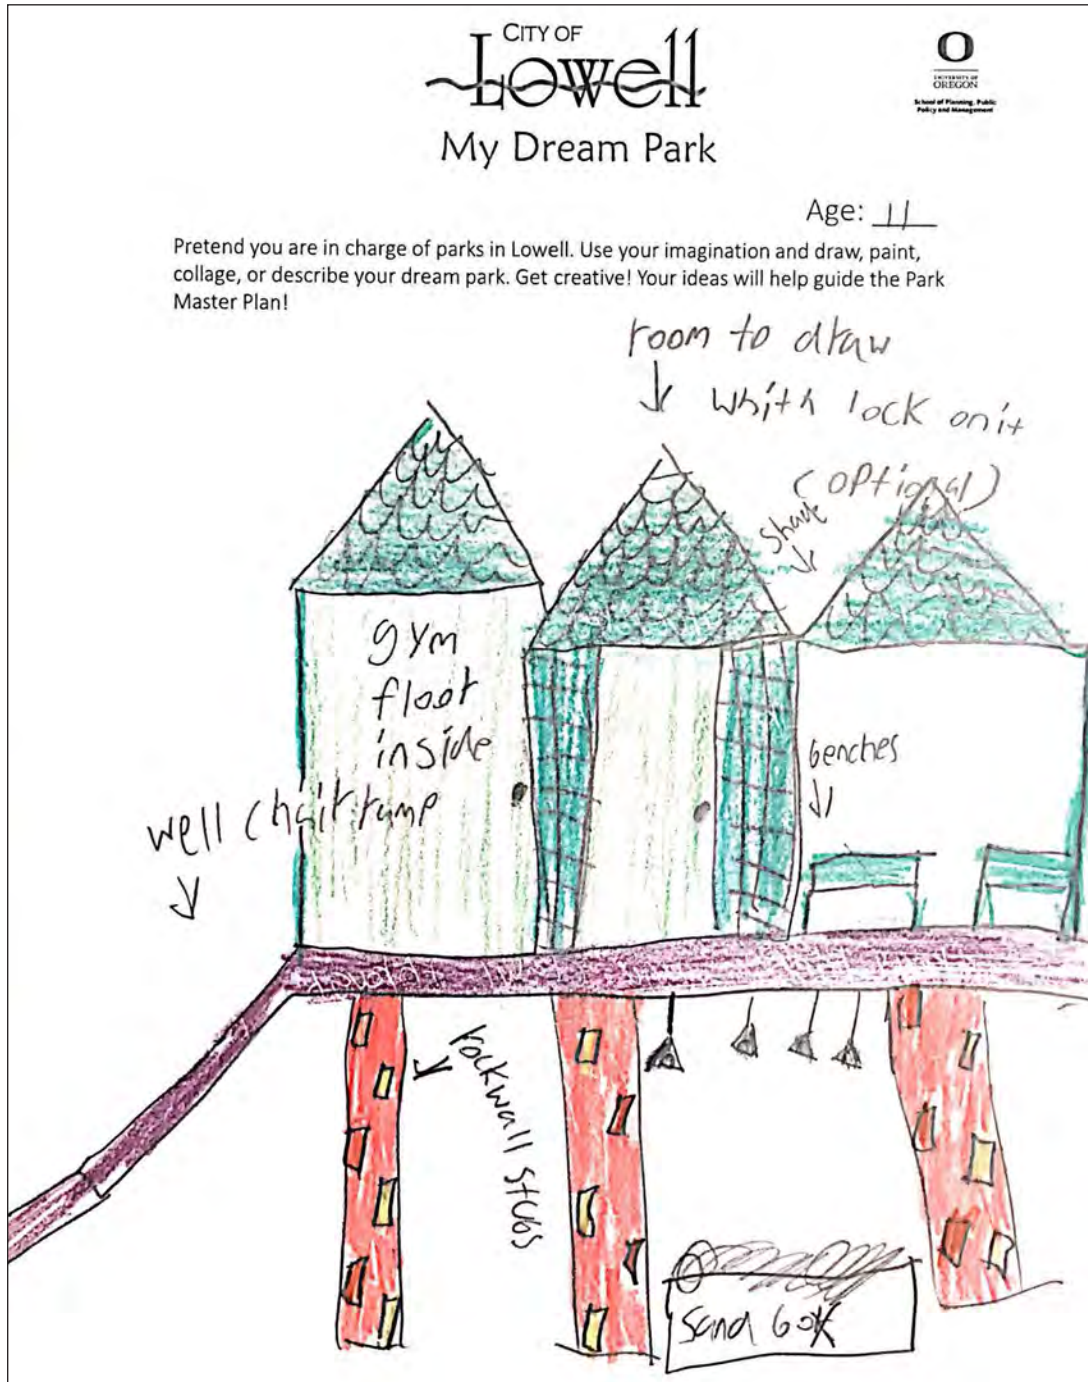 CITY OF
Lowell
My Dream Park
UNIVERSITY OF
OREGON
School of Planning, Public
Policy and Management
Age: 11
Pretend you are in charge of parks in Lowell. Use your imagination and draw, paint,
collage, or describe your dream park. Get creative! Your ideas will help guide the Park
Master Plan!
room to draw
whith lock on it
(optional)
shade
gym
floor
inside
benches
well chair ramp
rockwall stubs
Sand box